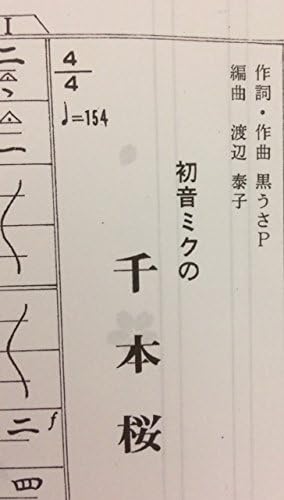 作詞・作曲 黒うさP
編曲 渡辺 泰子
初音ミクの
千本桜
4/4
♩=154
I
二
一
二 f
四